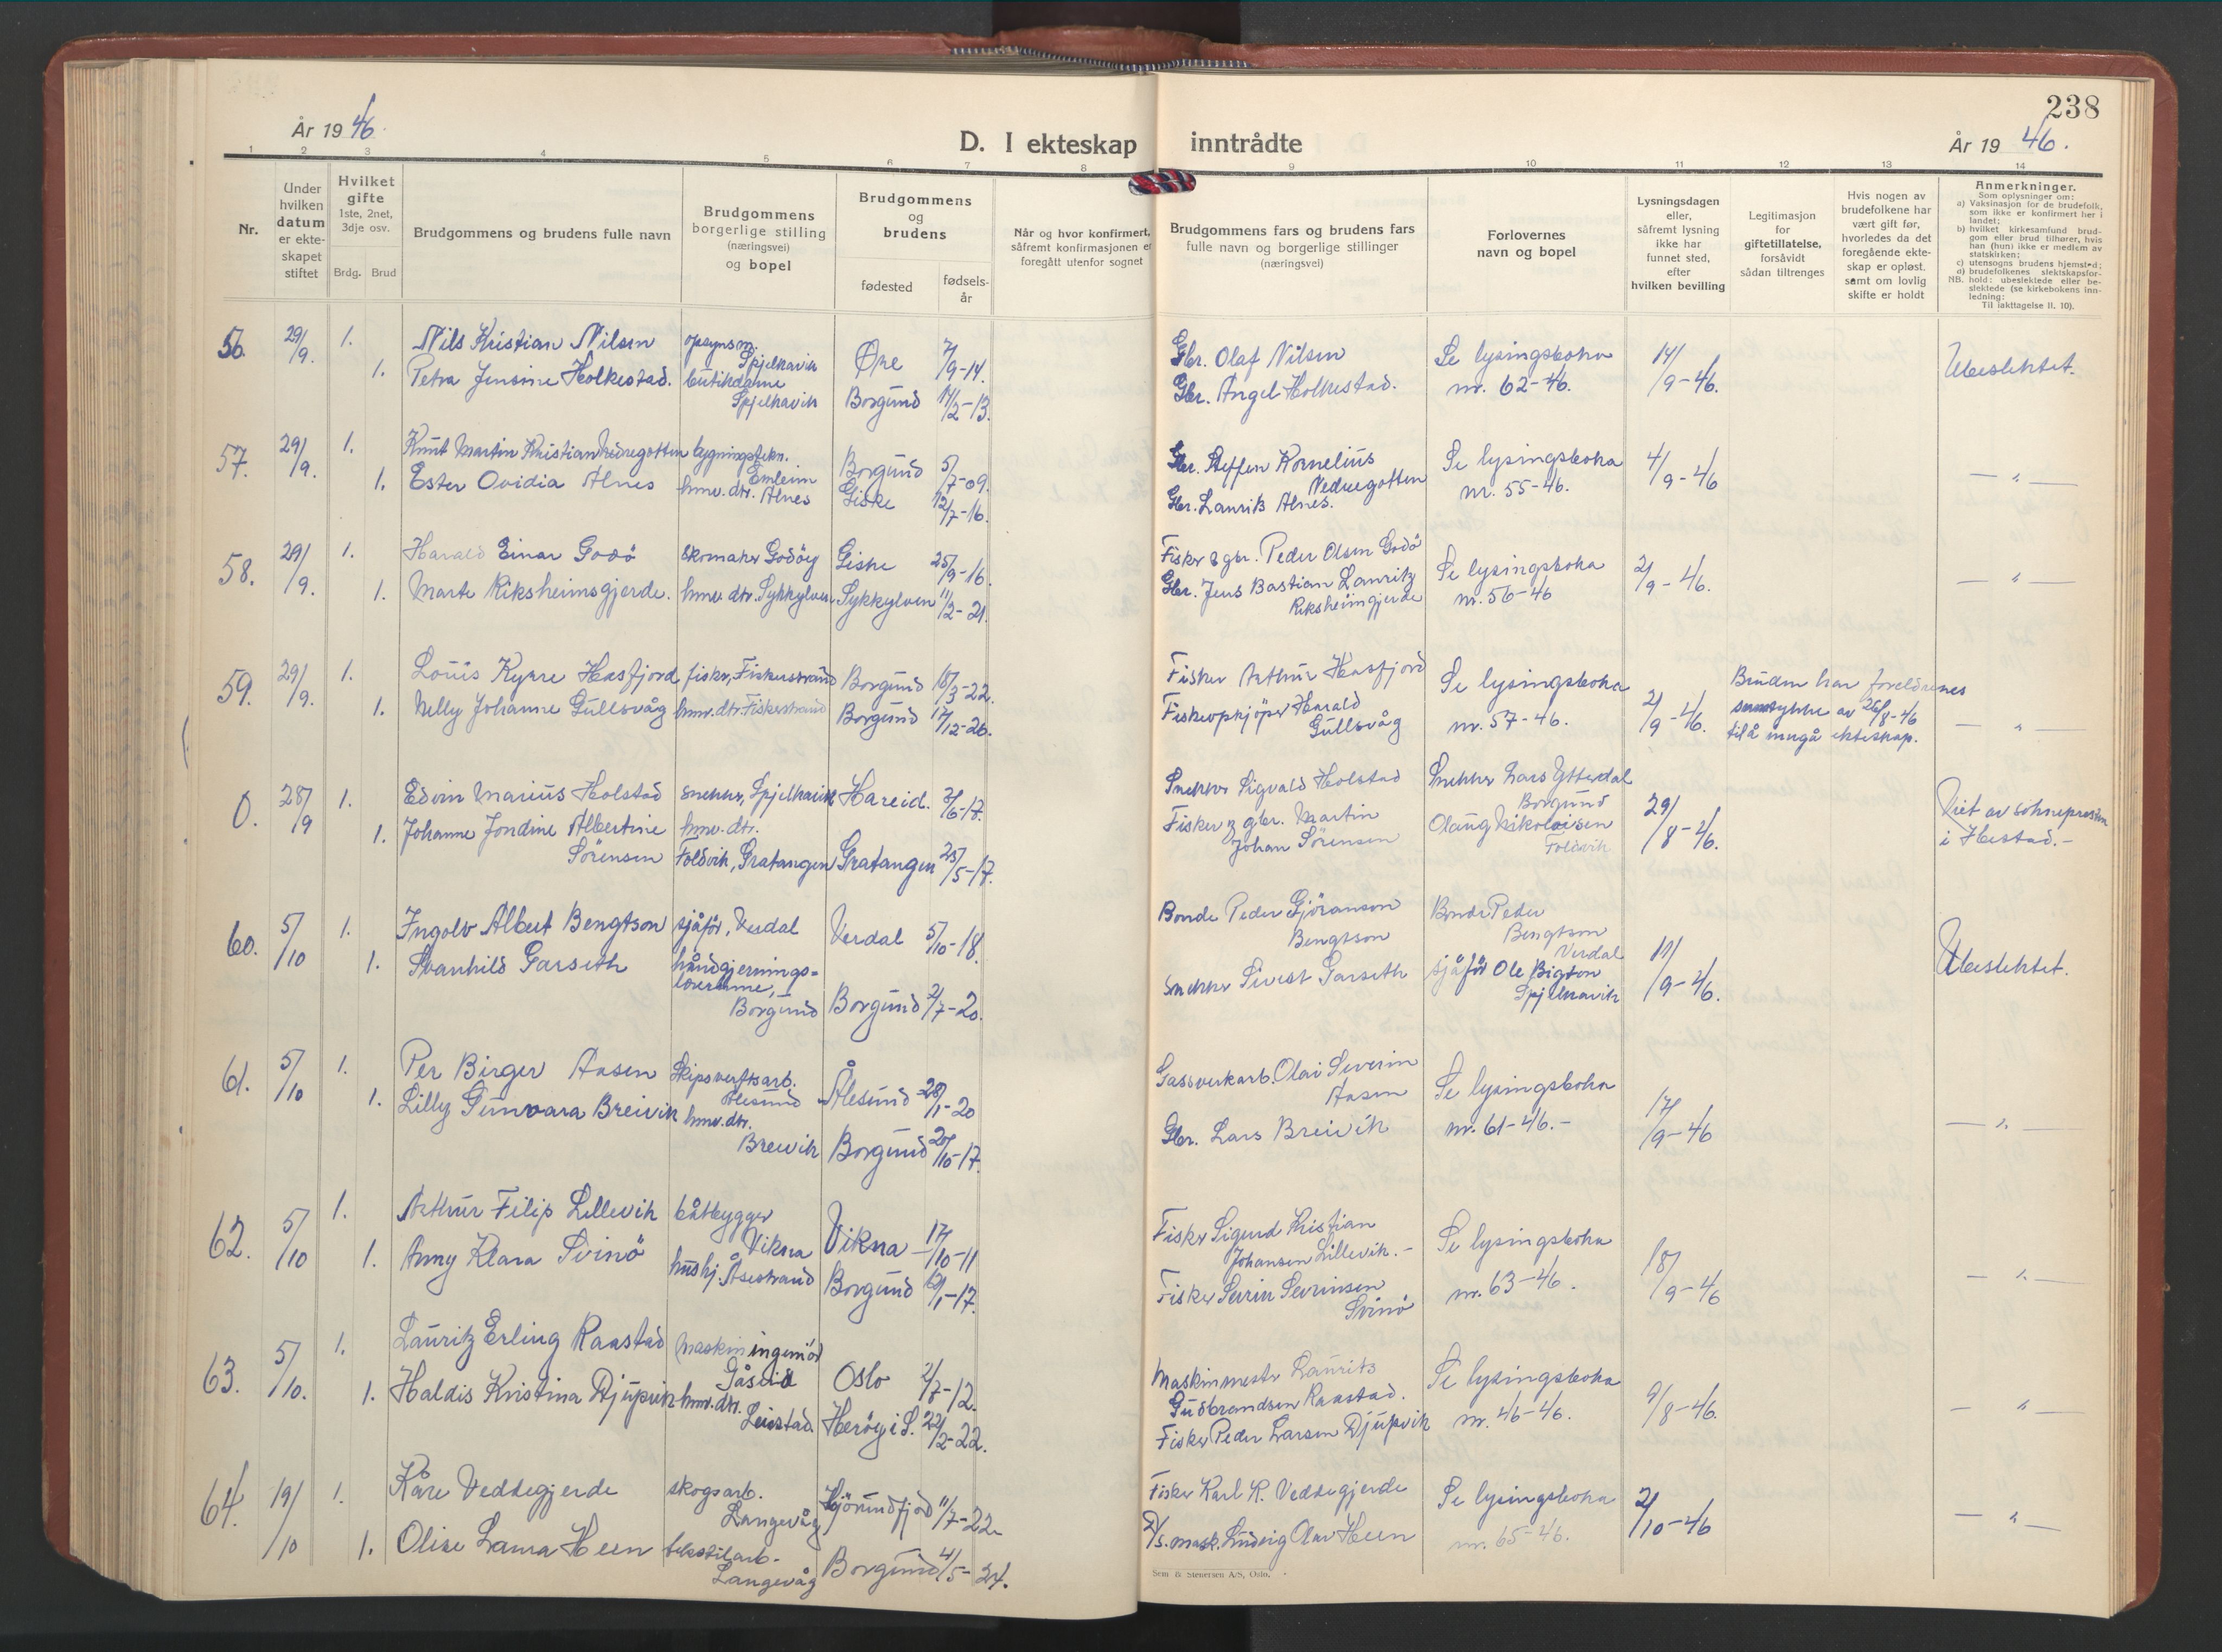 238
År 1946.
D. I ekteskap inntrådte
År 1946.
1 2 3 4 5 6 7 8 9 10 11 12 13 14
Nr.
Under hvilken datum er ekte-skapet stiftet
Hvilket gifte 1ste, 2net, 3dje osv.
Brdg. Brud
Brudgommens og brudens fulle navn
Brudgommens borgerlige stilling (næringsvei) og bopel
Brudgommens og brudens
fødested
fødsels-år
Når og hvor konfirmert, såfremt konfirmasjonen er foregått utenfor sognet
Brudgommens fars og brudens fars fulle navn og borgerlige stillinger (næringsvei)
Forlovernes navn og bopel
Lysningsdagen eller, såfremt lysning ikke har funnet sted, efter hvilken bevilling
Legitimasjon for giftetillatelse, forsåvidt sådan tiltrenges
Hvis nogen av brudefolkene har vært gift før, hvorledes da det foregående ekte-skap er opløst. samt om lovlig skifte er holdt
Anmerkninger.
Som oplysninger om:
a) Vaksinasjon for de brudefolk, som ikke er konfirmert her i landet;
b) hvilket kirkesamfund brud-gom eller brud tilhører, hvis han (hun) ikke er medlem av statskirken;
c) utensogns brudens hjemsted;
d) brudefolkenes slektskapsfor-hold: ubeslektede eller be-slektede (se kirkebokens inn-ledning:
NB.
Til iakttagelse II. 10).
56. 29/9. 1. Nils Kristian Nilsen opsynsm. Spjelkavik Øre 7/9-14. Gbr. Olaf Nilsen Se lysingsboka 14/9-46. Ubeslektet.
1. Petra Jensine Holkestad. butikdame Spjelkavik Borgund 14/2-13. Gbr. Angel Holkestad. nr. 62-46.
57. 29/9. 1. Knut Martin Kristian Nedregotten bygningstekn. Emleim Borgund 5/7-09. Gbr. Steffen Kornelius Nedregotten Se lysingsboka 4/9-46 — " —
1. Ester Ovidia Alnes hmv. dtr. Alnes Giske 12/7-16. Gbr. Laurits Alnes. nr. 55-46.
58. 29/9. 1. Harald Einar Godö skomaker Godöy Giske 25/9-16. Fisker & gbr. Peder Olsen Godö Se lysingsboka 2/9-46. — " —
1. Marte Riksheimsgjerde. hmv. dtr. Sykkylven Sykkylven 11/2-21. Gbr. Jens Bastian Lauritz Riksheimgjerde nr. 56-46
59. 29/9. 1. Louis Kyrre Hasfjord fisker, Fiskerstrand Borgund 18/3-22. Fisker Arthur Hasfjord Se lysingsboka 2/9-46. Bruden har foreldrenes samtykke av 26/8-46 til å inngå ekteskap. — " —
1. Nelly Johanne Gullsvåg hmv. dtr. Fiskerstrand Borgund 17/12-26. Fiskeopkjöper Harald Gullsvåg nr. 57-46.
0. 28/9 1. Edvin Marius Holstad snekker, Spjelkavik Hareid. 3/6-18. Snekker Sigvald Holstad Snekker Lars Ytterdal Borgund 29/8-46. Viet av soknepresten i Ibestad.-
1. Johanne Jondine Albertine Sörensen hmv. dtr. Foldvik, Gratangen Gratangen 25/5-17. Fisker og gbr. Martin Johan Sörensen Olaug Nikolaisen Foldvik
60. 5/10 1. Ingolv Albert Bengtson sjåför, Verdal Verdal 5/10-18. Bonde Peder Gjöranson Bengtson Bonde Peder Bengtson Verdal 11/9-46. Ubeslektet.
1. Svanhild Garseth håndgjernings-lærerinne, Borgund Borgund 2/7-20. Snekker Sivert Garseth sjåför Ole Bigton Spjelkavik
61. 5/10 1. Per Birger Aasen Skipsverftsarb. Ålesund Ålesund 28/1-20 Gassverkarb. Olai Severin Aasen Se lysingsboka 17/9-46 — " —
1. Lilly Gunvara Breivik hmv. dtr. Breivik Borgund 20/10-17. Gbr. Lars Breivik nr. 61-46.-
62. 5/10 1. Arthur Filip Lillevik båtbygger Vikna Vikna 17/10-11 Fisker Sigurd Kristian Johansen Lillevik.- Se lysingsboka 18/9-46 — " —
1. Anny Klara Svinö hushj. Åsestrand Borgund 10/1-17. Fisker Sevrin Sevrinsen Svinö nr. 63-46.
63. 5/10. 1. Lauritz Erling Raastad maskiningeniör Gåseid Oslo 2/7-12. Maskinmester Laurits Gudbrandsen Raastad. Se lysingsboka 9/8-46. — " —
1. Haldis Kristina Djupvik hmv. dtr. Leirstad Heröy i S. 22/2-22. Fisker Peder Larsen Djupvik nr. 46-46.
64. 19/10 1. Kåre Veddegjerde skogsarb. Langevåg Hjörundfjord 11/7-22 Fisker Karl K. Veddegjerde Se lysingsboka 2/10-46 — " —
1. Olise Laura Heen tekstilarb. Langevåg Borgund 4/5-24. D/s. mask. Ludvig Olav Heen nr. 65-46.
Sem & Stenersen A/S, Oslo.